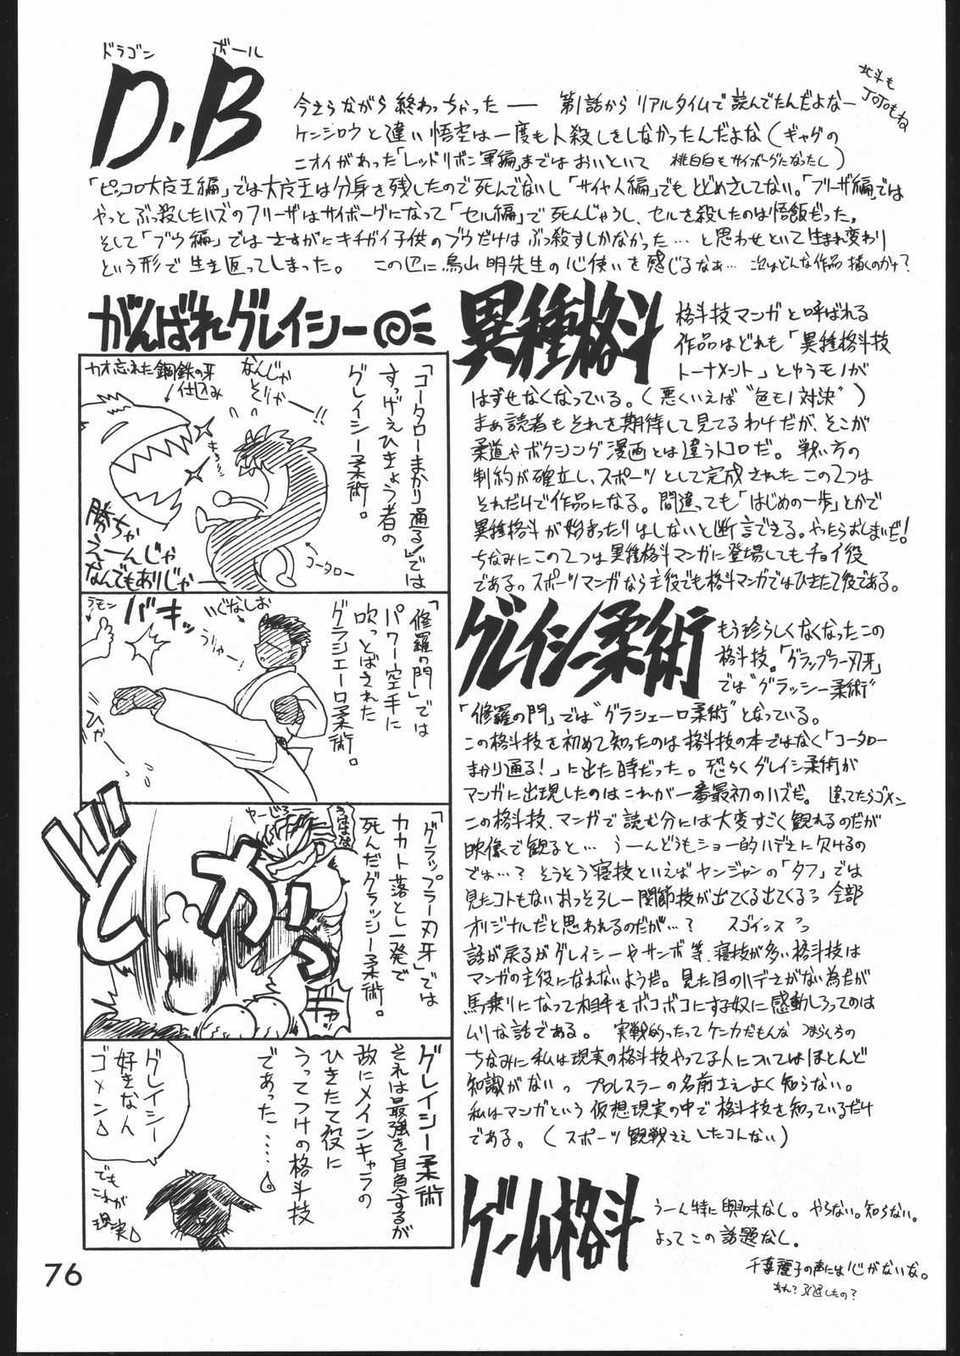 ドラゴン ボール
D.B
北斗も
JOJOもね
今さらながら終わっちゃった── 第1話からリアルタイムで読んでたんだよなー
ケンシロウと違い悟空は一度も人殺しをしなかったんだよな(ギャグの
ニオイがあった「レッドリボン軍編」まではおいといて 桃白白もサイボーグとなったし)
「ピッコロ大魔王編」では大魔王は分身を残したので死んでないし「サイヤ人編」でもとどめさしてない。「フリーザ編」では
やっとぶっ殺したハズのフリーザはサイボーグになって「セル編」で死んじゃうし、セルを殺したのは悟飯だった。
そして「ブウ編」ではさすがにキチガイ子供のブウだけはぶっ殺すしかなかった…と思わせといて生まれ変わり
という形で生き返ってしまった。 この辺に鳥山明先生の心使いを感じるなあ… 次はどんな作品描くのかけ?
異種格斗
格斗技マンガと呼ばれる
作品はどれも「異種格斗技
トーナメント」とゆうモノが
はずせなくなっている。(悪くいえば"色モノ対決")
まあ読者もそれを期待して見てるわけだが、そこが
柔道やボクシング漫画とは違うトコロだ。 戦い方の
制約が確立し、スポーツとして完成されたこの2つは
それだけで作品になる。 間違っても「はじめの一歩」とかで
異種格斗が始まったりはしないと断言できる。やったらおしまいだ!
ちなみにこの2つは異種格斗マンガに登場してもチョイ役
である。スポーツマンガなら主役でも格斗マンガではひきたて役である。
グレイシー柔術
もう珍らしくなくなったこの
格斗技。「グラップラー刃牙」
では"グラッシー柔術"
「修羅の門」では"グラシェーロ柔術"となっている。
この格斗技を初めて知ったのは格斗技の本ではなく「コータロー
まかり通る!」に出た時だった。 恐らくグレイシー柔術が
マンガに出現したのはこれが一番最初のハズだ。 違ってたらゴメン
この格斗技、マンガで読む分には大変すごく観れるのだが
映像で観ると… うーんどうもショー的ハデさに欠けるの
でねー…? そうそう寝技といえばヤンジャンの「タフ」では
見たコトもないおっそろしー関節技が出てくる出てくる 全部
オリジナルだと思われるのだが…? スゴイッス
話が戻るがグレイシーやサンボ等、寝技が多い格斗技は
マンガの主役になれないようだ。 見た目のハデさがない為だが
馬乗りになって相手をボコボコにする奴に感動しろってのは
ムリな話である。 実戦的ったってケンカだもんな
ちなみに私は現実の格斗技やってる人についてはほとんど
知識がない。 プロレスラーの名前さえよく知らない。
私はマンガという仮想現実の中で格斗技を知っているだけ
である。(スポーツ観戦さえしたコトない)
ゲーム格斗
うーん特に興味なし。 やらない。知らない。
よってこの話題なし。
千葉麗子の声には心がないな。
がんばれグレイシー
「コータローまかり通る!」では
すっげぇひきょう者の
グレイシー柔術。
なんじゃ
そりゃー!!
カオ忘れた
鋼鉄の牙
仕込み
コータロー
勝ちゃ
えーんじゃ
なんでもありじゃー
「修羅の門」では
パワー空手に
吹っとばされた
グラシェーロ柔術。
いぐなしお
うりゃー!
バキッ
ラモン
「グラップラー刃牙」では
カカト落とし一発で
死んだグラッシー柔術。
やーじる
ドカッ
グレイシー柔術
それは最強を自負するが
故にメインキャラの
ひきたて役に
うってつけの格斗技
であった……。
グレイシー
好きなん
ゴメン
でも
これが
現実
76